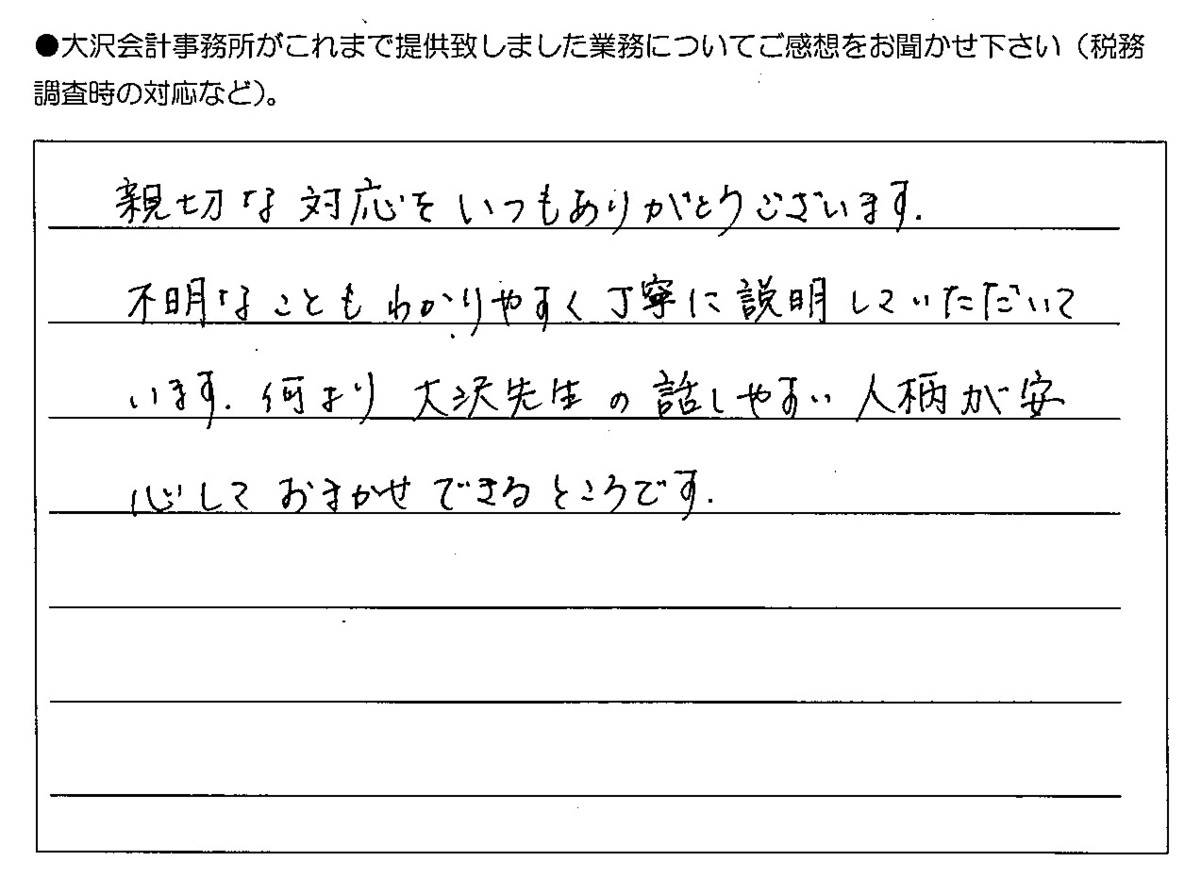 ●大沢会計事務所がこれまで提供致しました業務についてご感想をお聞かせ下さい（税務
調査時の対応など）。
親切な対応をいつもありがとうございます.
不明なこともわかりやすく丁寧に説明していただいて
います. 何より大沢先生の話しやすい人柄が安
心しておまかせできるところです.